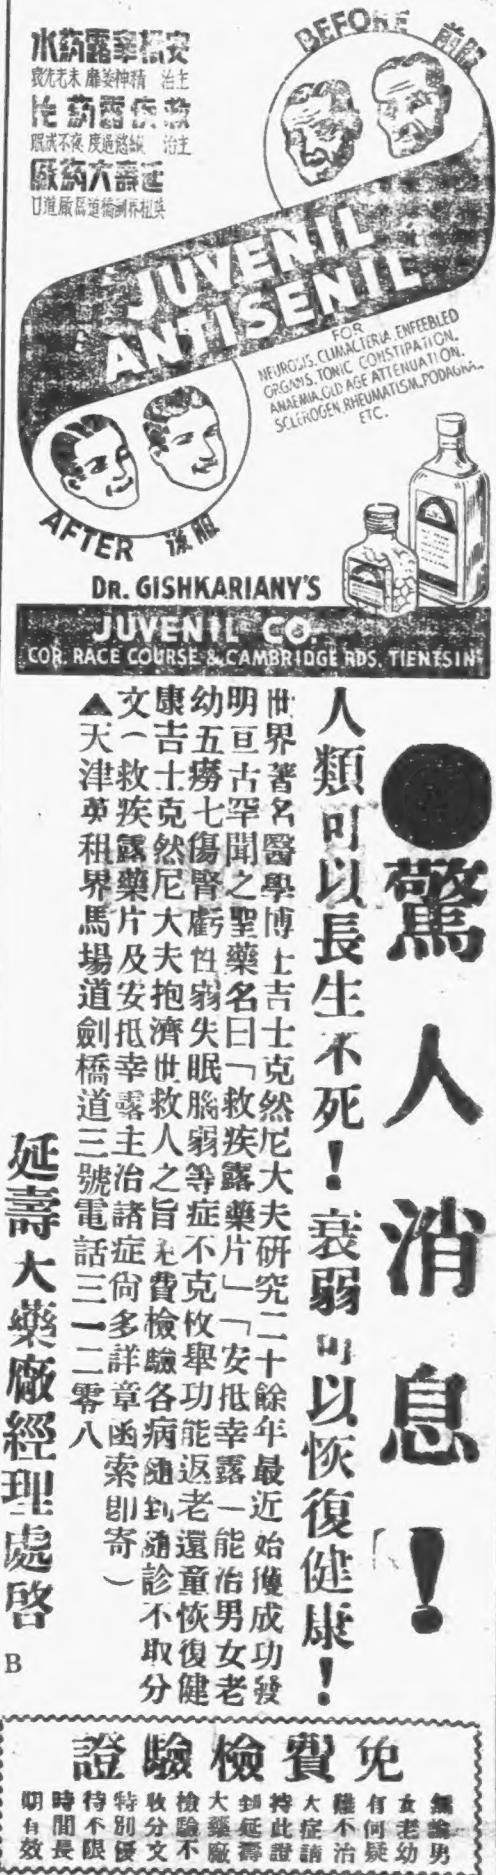 安抵幸露药水
主治 精神萎靡 未老先衰
救疾露药片
主治 綫路過度 夜不成眠
延壽大药廠
英租界劍橋道馬廠道口
BEFORE 服前
JUVENIL
ANTISENIL
FOR
NEUROSIS, CLIMACTERIA, ENFEEBLED
ORGANS, TONIC CONSTIPATION,
ANAEMIA, OLD AGE ATTENUATION,
SCLEROGEN, RHEUMATISM, PODAGRA,
ETC.
AFTER 服後
DR. GISHKARIANY'S
JUVENIL CO.
COR. RACE COURSE & CAMBRIDGE RDS. TIENTSIN
●驚人消息!
人類可以長生不死!衰弱可以恢復健康!
世界著名醫學博士吉士克然尼大夫研究二十餘年最近始獲成功發
明亘古罕聞之聖藥名曰「救疾露藥片」「安抵幸露」能治男女老
幼五癆七傷腎虧性弱失眠腦弱等症不克枚舉功能返老還童恢復健
康吉士克然尼大夫抱濟世救人之旨免費檢驗各病隨到隨診不取分
文(救疾露藥片及安抵幸露主治諸症尙多詳章函索卽寄)
▲天津英租界馬場道劍橋道三號電話三一二零八
延壽大藥廠經理處啓
B
免費檢驗證
無論男
女老幼
有何疑
難不治
大症請
持此證
到延壽
大藥廠
檢驗不
收分文
特別優
待不限
時間長
期有效